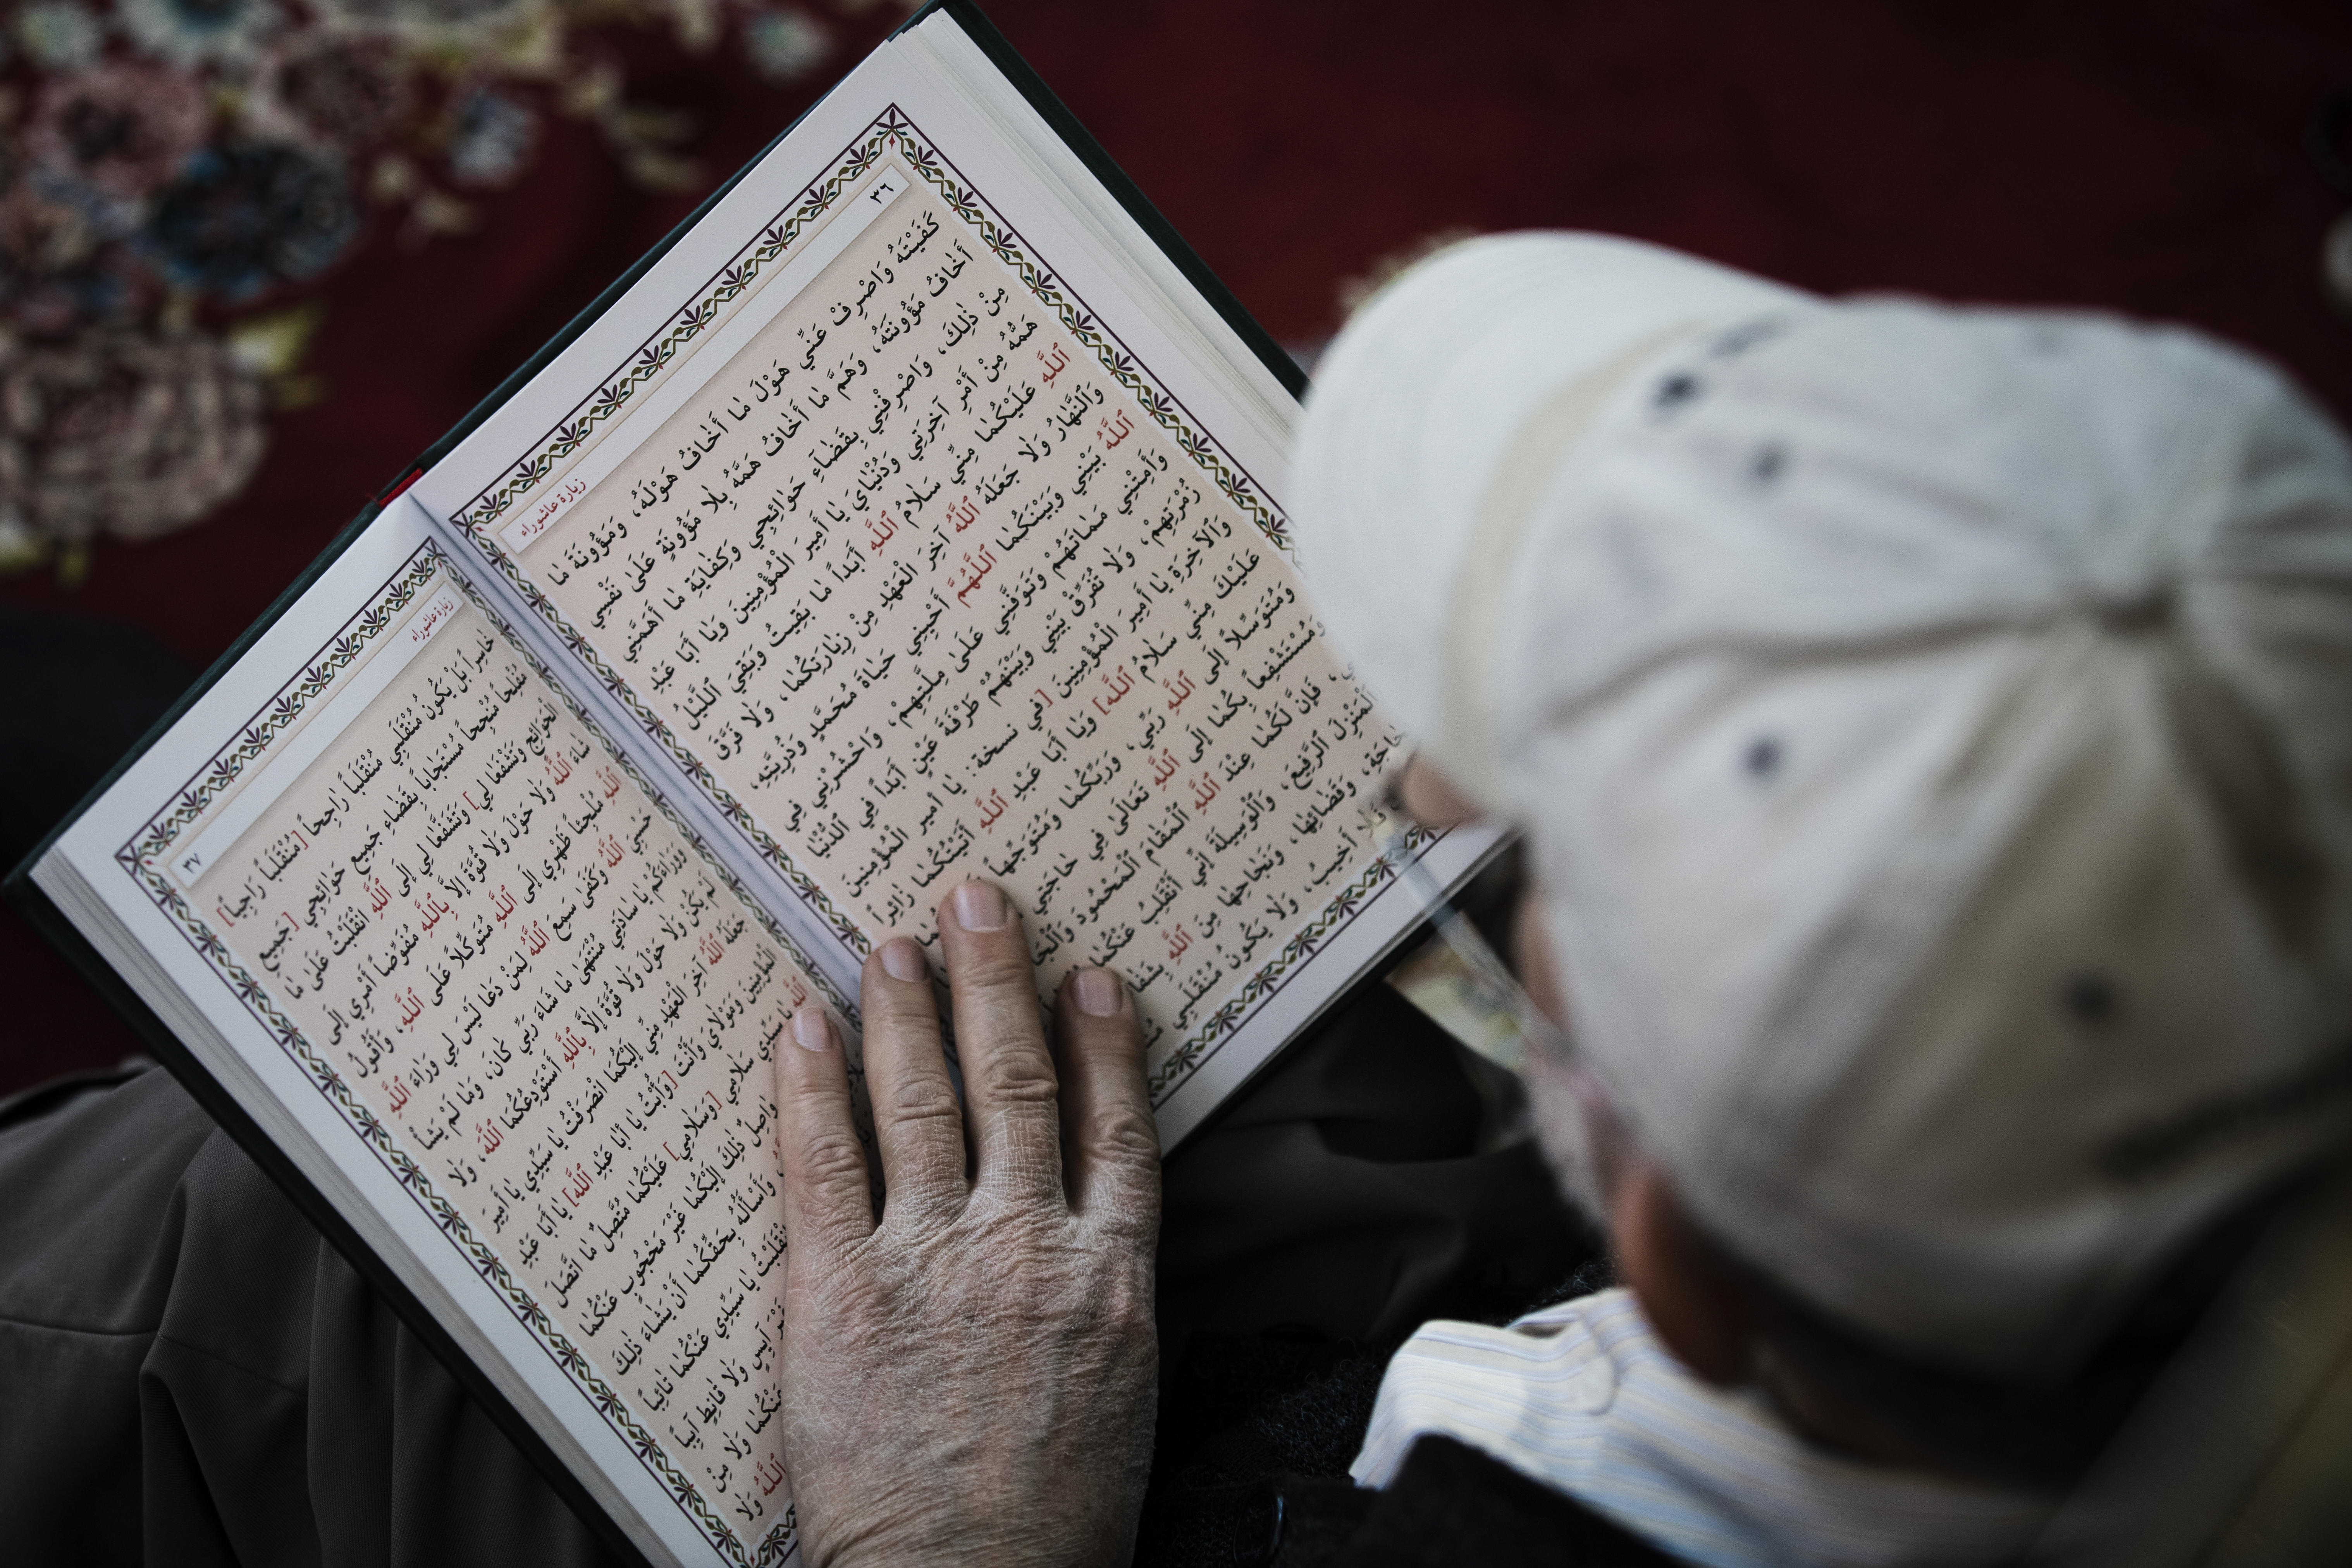 ٣٦
زيارة عاشوراء
كَفَيْتَهُ وَاصْرِفْ عَنِّي هَوْلَ مٰا أَخٰافُ هَوْلَهُ، وَمَؤُونَةَ مٰا
أَخٰافُ مَؤُونَتَهُ، وَهَمَّ مٰا أَخٰافُ هَمَّهُ بِلٰا مَؤُونَةٍ عَلَىٰ نَفْسِي
مِنْ ذٰلِكَ، وَاصْرِفْنِي بِقَضٰاءِ حَوٰائِجِي وَكِفٰايَةِ مٰا أَهَمَّنِي
هَمُّهُ مِنْ أَمْرِ آخِرَتِي وَدُنْيٰايَ يٰا أَمِيرَ الْمُؤْمِنِينَ وَيٰا أَبٰا عَبْدِ
اللّٰهِ عَلَيْكُمٰا مِنِّي سَلٰامُ اللّٰهِ أَبَداً مٰا بَقِيتُ وَبَقِيَ اللَّيْلُ
وَالنَّهٰارُ وَلٰا جَعَلَهُ اللّٰهُ آخِرَ الْعَهْدِ مِنْ زِيٰارَتِكُمٰا، وَلٰا فَرَّقَ
اللّٰهُ بَيْنِي وَبَيْنَكُمٰا اللّٰهُمَّ أَحْيِنِي حَيٰاةَ مُحَمَّدٍ وَذُرِّيَّتِهِ،
وَأَمِتْنِي مَمٰاتَهُمْ وَتَوَفَّنِي عَلَىٰ مِلَّتِهِمْ، وَاحْشُرْنِي فِي
زُمْرَتِهِمْ، وَلٰا تُفَرِّقْ بَيْنِي وَبَيْنَهُمْ طَرْفَةَ عَيْنٍ أَبَداً فِي الدُّنْيٰا
وَالْآخِرَةِ يٰا أَمِيرَ الْمُؤْمِنِينَ [في نسخة: يٰا أمير الْمُؤْمِنِينَ
عَلَيْكَ مِنِّي سَلٰامُ اللّٰهِ] وَيٰا أَبٰا عَبْدِ اللّٰهِ أَتَيْتُكُمٰا زٰائِراً
وَمُتَوَسِّلاً إِلَى اللّٰهِ رَبِّي، وَرَبِّكُمٰا وَمُتَوَجِّهاً
وَمُسْتَشْفِعاً بِكُمٰا إِلَى اللّٰهِ تَعٰالَىٰ فِي حٰاجَتِي
فَإِنَّ لَكُمٰا عِنْدَ اللّٰهِ الْمَقٰامَ الْمَحْمُودَ وَالْجٰا
الْمَنْزِلَ الرَّفِيعَ، وَالْوَسِيلَةَ إِنِّي أَنْقَلِبُ عَنْكُمٰا
وَقَضٰائِهٰا، وَنَجٰاحِهٰا مِنَ اللّٰهِ بِشَفٰا
فَلٰا أَخِيبُ، وَلٰا يَكُونُ مُنْقَلَبِي
زيارة عاشوراء
٣٧
خٰاسِراً بَلْ يَكُونُ مُنْقَلَبِي مُنْقَلَباً رٰاجِحاً [مُنْقَلَباً رَاجِياً]
مُفْلِحاً مُنْجِحاً مُسْتَجٰاباً بِقَضٰاءِ جَمِيعِ حَوٰائِجِي [جَمِيعِ
الْحَوَائِجِ وَتَشْفَعٰا لِي] وَتَشَفَّعٰا لِي إِلَى اللّٰهِ انْقَلَبْتُ عَلَىٰ مٰا
شٰاءَ اللّٰهُ وَلٰا حَوْلَ وَلٰا قُوَّةَ إِلّٰا بِاللّٰهِ مُفَوِّضاً أَمْرِي إِلَى
اللّٰهِ مُلْجِئاً ظَهْرِي إِلَى اللّٰهِ مُتَوَكِّلاً عَلَى اللّٰهِ، وَأَقُولُ
حَسْبِيَ اللّٰهُ وَكَفَىٰ سَمِعَ اللّٰهُ لِمَنْ دَعٰا لَيْسَ لِي وَرٰاءَ اللّٰهِ
وَوَرٰاءَكُمْ يٰا سٰادَتِي مُنْتَهَىٰ مٰا شٰاءَ رَبِّي كٰانَ، وَمٰا لَمْ يَشَأْ
لَمْ يَكُنْ وَلٰا حَوْلَ وَلٰا قُوَّةَ إِلّٰا بِاللّٰهِ أَسْتَوْدِعُكُمَا اللّٰهَ، وَلٰا
جَعَلَهُ اللّٰهُ آخِرَ الْعَهْدِ مِنِّي إِلَيْكُمَا انْصَرَفْتُ يٰا سَيِّدِي يٰا أَمِيرَ
الْمُؤْمِنِينَ وَمَوْلٰايَ وَأَنْتَ [وَأُبْتُ يٰا أَبٰا عَبْدِ اللّٰهِ] يٰا أَبٰا عَبْدِ
اللّٰهِ يٰا سَيِّدِي سَلٰامِي [وَسَلٰامِي] عَلَيْكُمٰا مُتَّصِلٌ مٰا اتَّصَلَ
وٰاصِلٌ ذٰلِكَ إِلَيْكُمٰا غَيْرُ مَحْجُوبٍ عَنْكُمٰا
وَأَسْأَلُهُ بِحَقِّكُمٰا أَنْ يَشٰاءَ ذٰلِكَ
يٰا سَيِّدِي عَنْكُمٰا تٰائِباً
آيِسٍ وَلٰا قٰانِطٍ آيِباً
عَنْكُمٰا وَلٰا مِنْ
اللّٰهُ وَلٰا